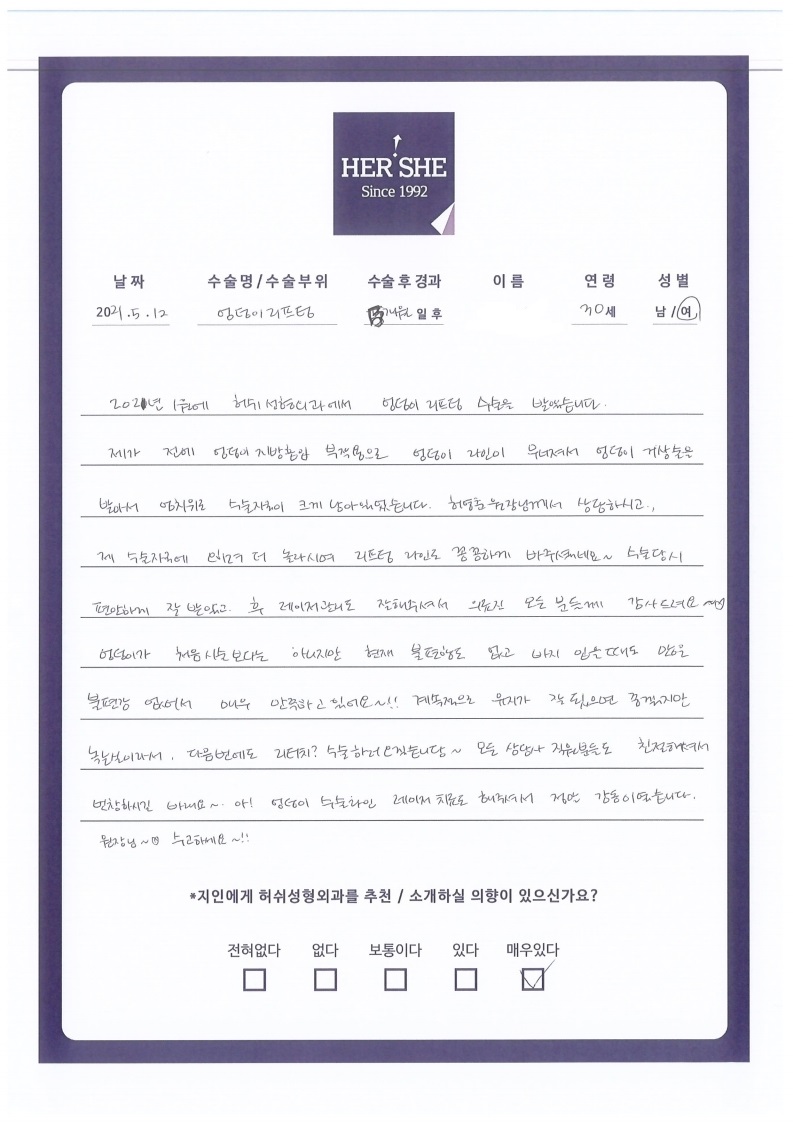 HER SHE
Since 1992
날짜 수술명/수술부위 수술 후 경과 이름 연령 성별
2021.5.12 엉덩이 리프팅 개월 일 후 30세 남/여
2021년 1월에 허쉬성형외과에서 엉덩이 리프팅 수술을 받았습니다.
제가 전에 엉덩이 지방흡입 부작용으로 엉덩이 라인이 무너져서 엉덩이 거상술을
받아서 엉치위로 수술자국이 크게 남아있었습니다. 허영훈 원장님께서 상담하시고,
제 수술자국에 더 놀라시며 리프팅 라인도 꼼꼼하게 봐주셨네요~ 수술당시
편안하게 잘 받았고 후 레이저관리도 잘해주셔서 의료진 모든 분들께 감사드려요~
엉덩이가 처음 시술보다는 아니지만 현재 불편함도 없고 바지 입을때도
불편감 없어서 매우 만족하고 있어요~!! 계속적으로 유지가 잘 됬으면 좋겠지만
다음번에도 리터치? 수술하러 오겠습니당~ 모든 상담사 직원분들도 친절하셔서
번창하시길 바래요~ 아! 엉덩이 수술라인 레이저 치료도 해주셔서 정말 감동이였습니다.
원장님~ 수고하세요~!!
*지인에게 허쉬성형외과를 추천 / 소개하실 의향이 있으신가요?
전혀없다 없다 보통이다 있다 매우있다